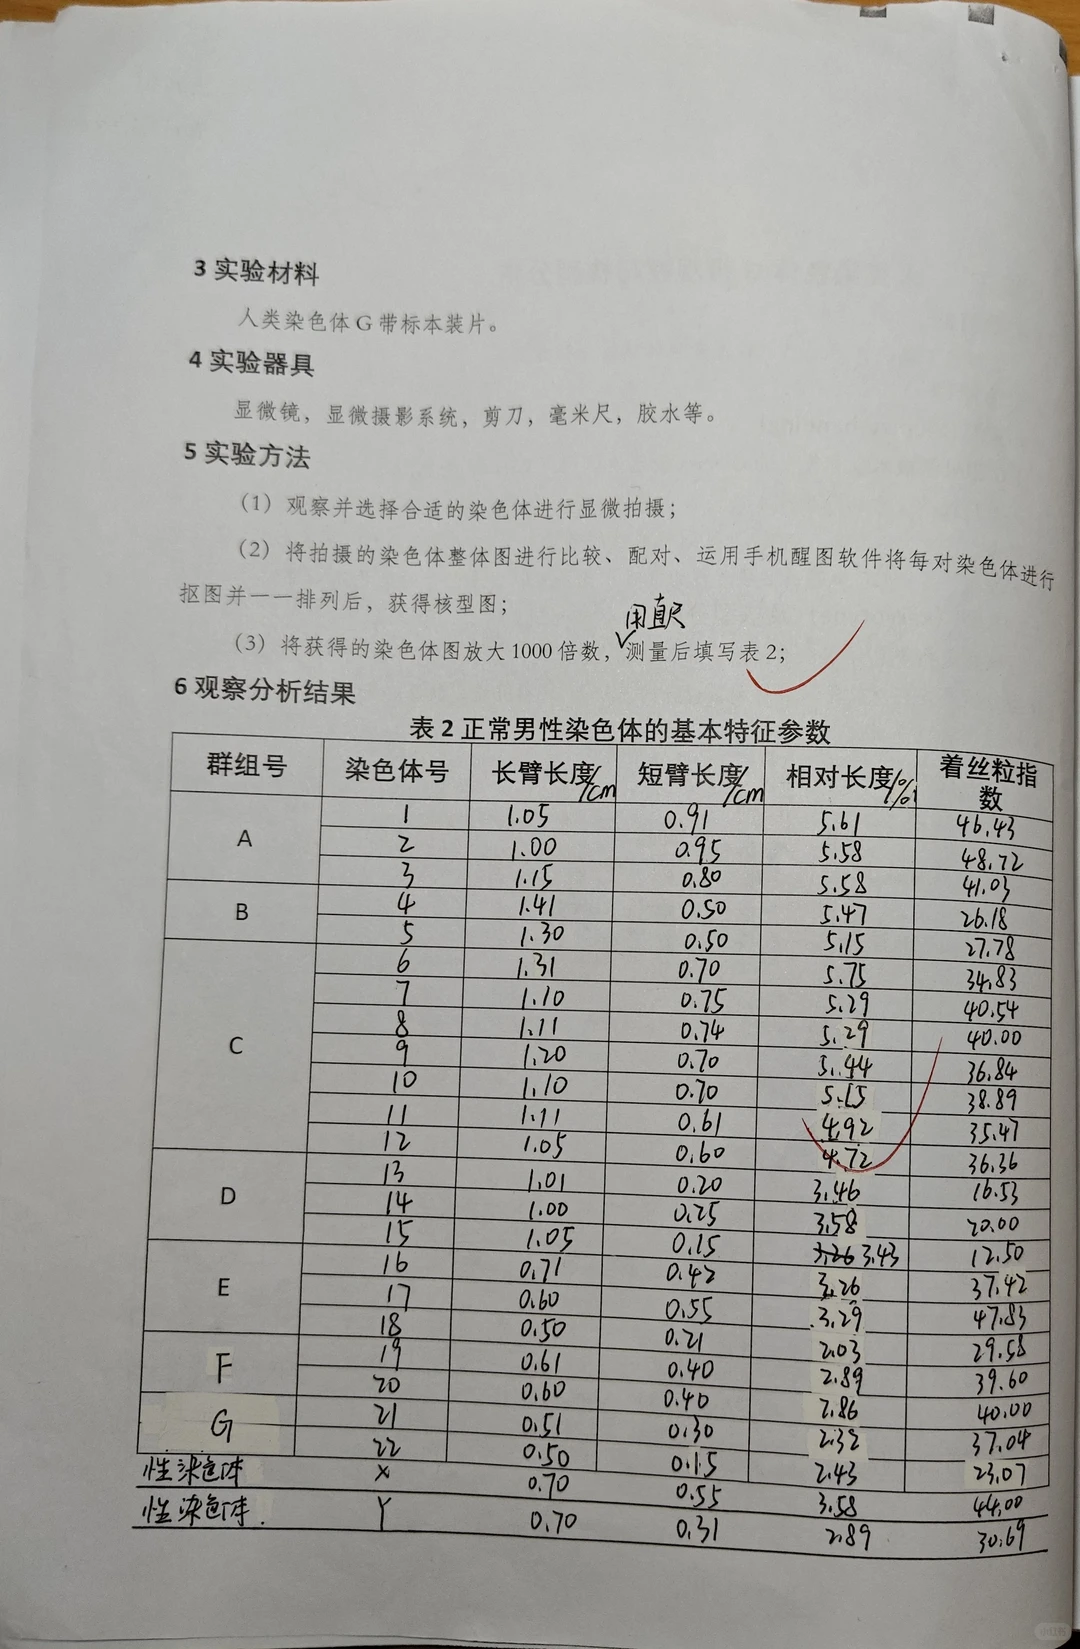 3 实验材料
人类染色体 G 带标本装片。
4 实验器具
显微镜，显微摄影系统，剪刀，毫米尺，胶水等。
5 实验方法
（1）观察并选择合适的染色体进行显微拍摄；
（2）将拍摄的染色体整体图进行比较、配对、运用手机醒图软件将每对染色体进行
抠图并一一排列后，获得核型图；
用直尺
（3）将获得的染色体图放大 1000 倍数，测量后填写表 2；
6 观察分析结果
表 2 正常男性染色体的基本特征参数
群组号 染色体号 长臂长度/cm 短臂长度/cm 相对长度/% 着丝粒指数
A 1 1.05 0.91 5.61 46.43
2 1.00 0.95 5.58 48.72
3 1.15 0.80 5.58 41.03
B 4 1.41 0.50 5.47 26.18
5 1.30 0.50 5.15 27.78
C 6 1.31 0.70 5.75 34.83
7 1.10 0.75 5.29 40.54
8 1.11 0.74 5.29 40.00
9 1.20 0.70 5.44 36.84
10 1.10 0.70 5.15 38.89
11 1.11 0.61 4.92 35.47
12 1.05 0.60 4.72 36.36
D 13 1.01 0.20 3.46 16.53
14 1.00 0.25 3.58 20.00
15 1.05 0.15 3.26 3.43 12.50
E 16 0.71 0.42 3.26 37.42
17 0.60 0.55 3.29 47.83
18 0.50 0.21 2.03 29.58
F 19 0.61 0.40 2.89 39.60
20 0.60 0.40 2.86 40.00
G 21 0.51 0.30 2.32 37.04
22 0.50 0.15 2.43 23.07
性染色体 X 0.70 0.55 3.58 44.00
性染色体. Y 0.70 0.31 2.89 30.69
小红书